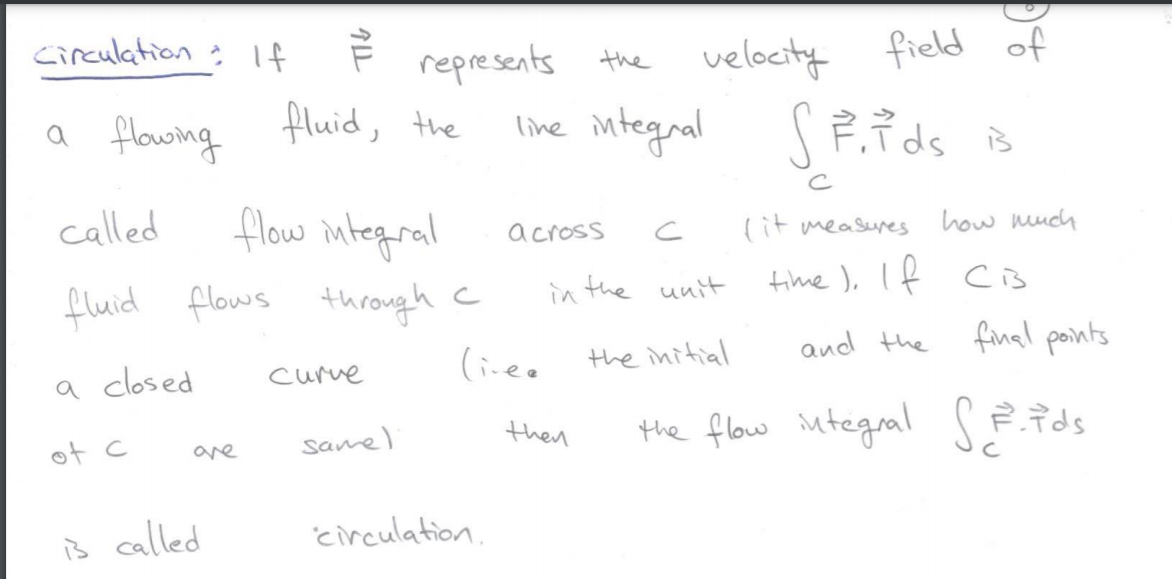 circulation : If F⃗ represents the velocity field of
a flowing fluid, the line integral ∫_C F⃗.T⃗ ds is
called flow integral across C (it measures how much
fluid flows through C in the unit time). If C is
a closed curve (i.e. the initial and the final points
of C are same) then the flow integral ∫_C F⃗.T⃗ds
is called circulation.